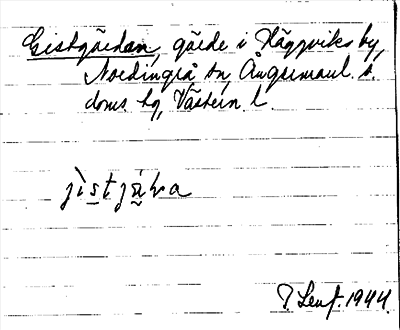 Gistgärdan, gärde i Häggviks by,
Nordingrå sn, Ångermanl. s.
doms hg, Västern. l.
jìstjäṛa
P. Lenf. 1944.